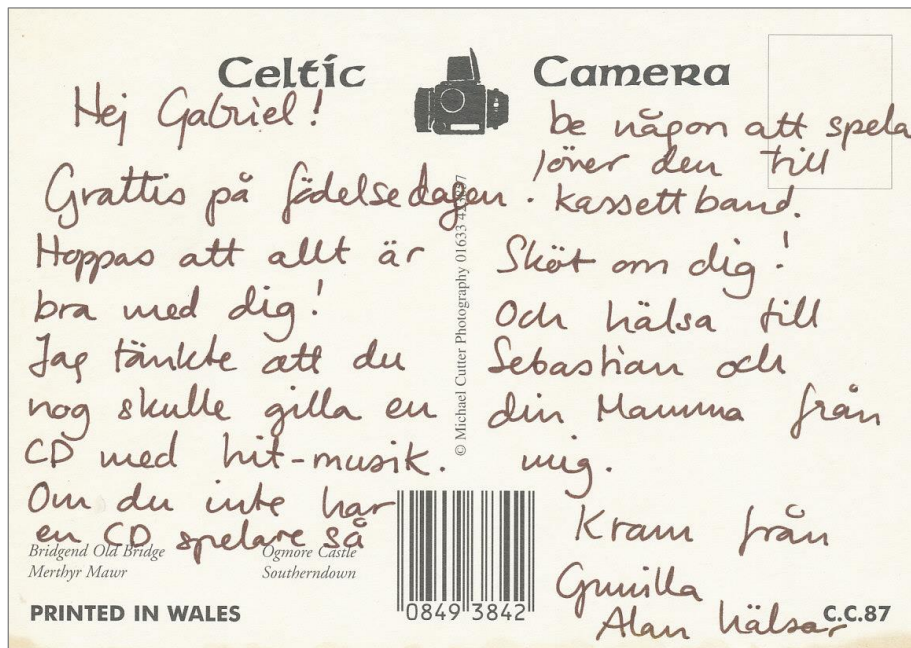 Celtic Camera
Hej Gabriel!
Grattis på födelsedagen.
Hoppas att allt är
bra med dig!
Jag tänkte att du
nog skulle gilla en
CD med hit-musik.
Om du inte har
en CD spelare så
be någon att spela
över den till
kassettband.
Sköt om dig!
Och hälsa till
Sebastian och
din Mamma från
mig.
Kram från
Gunilla
Alan hälsar
© Michael Cutter Photography 01633
Bridgend Old Bridge
Merthyr Mawr
Ogmore Castle
Southerndown
PRINTED IN WALES
0849 3842
C.C.87